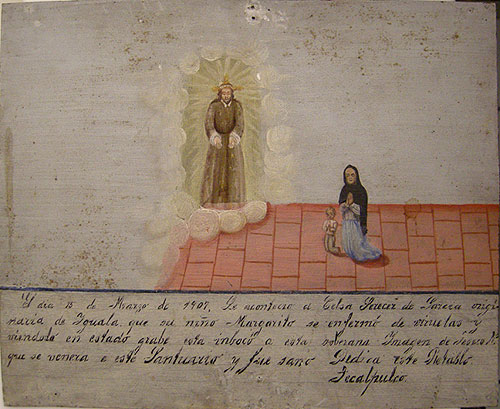 dia 15 de Marzo de 1907. Le acontecio a Celsa de Garcia origi
naria de Iguala, que su niño Margarito se enfermó de viruelas y
viendolo en estado grabe esta imboco a esta soberana Imagen de Jesus
que se venera e este Santuario y fue sano Dedica este Retablo
Tecalpulco.